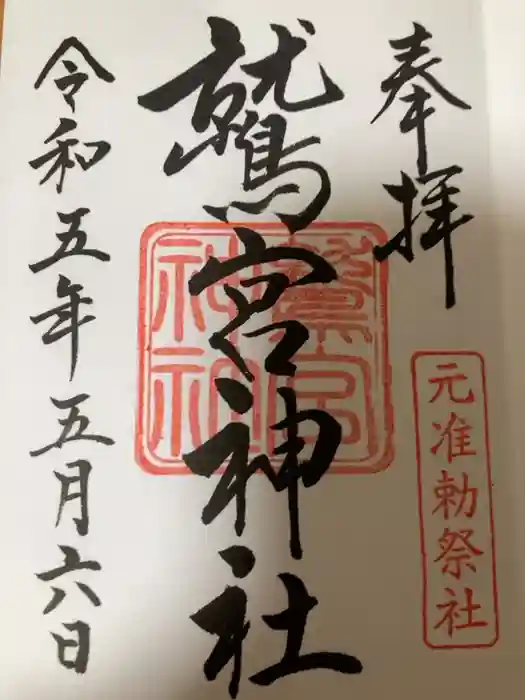 奉拝
元准勅祭社
鷲宮神社
鷲宮
神社
令和五年五月六日